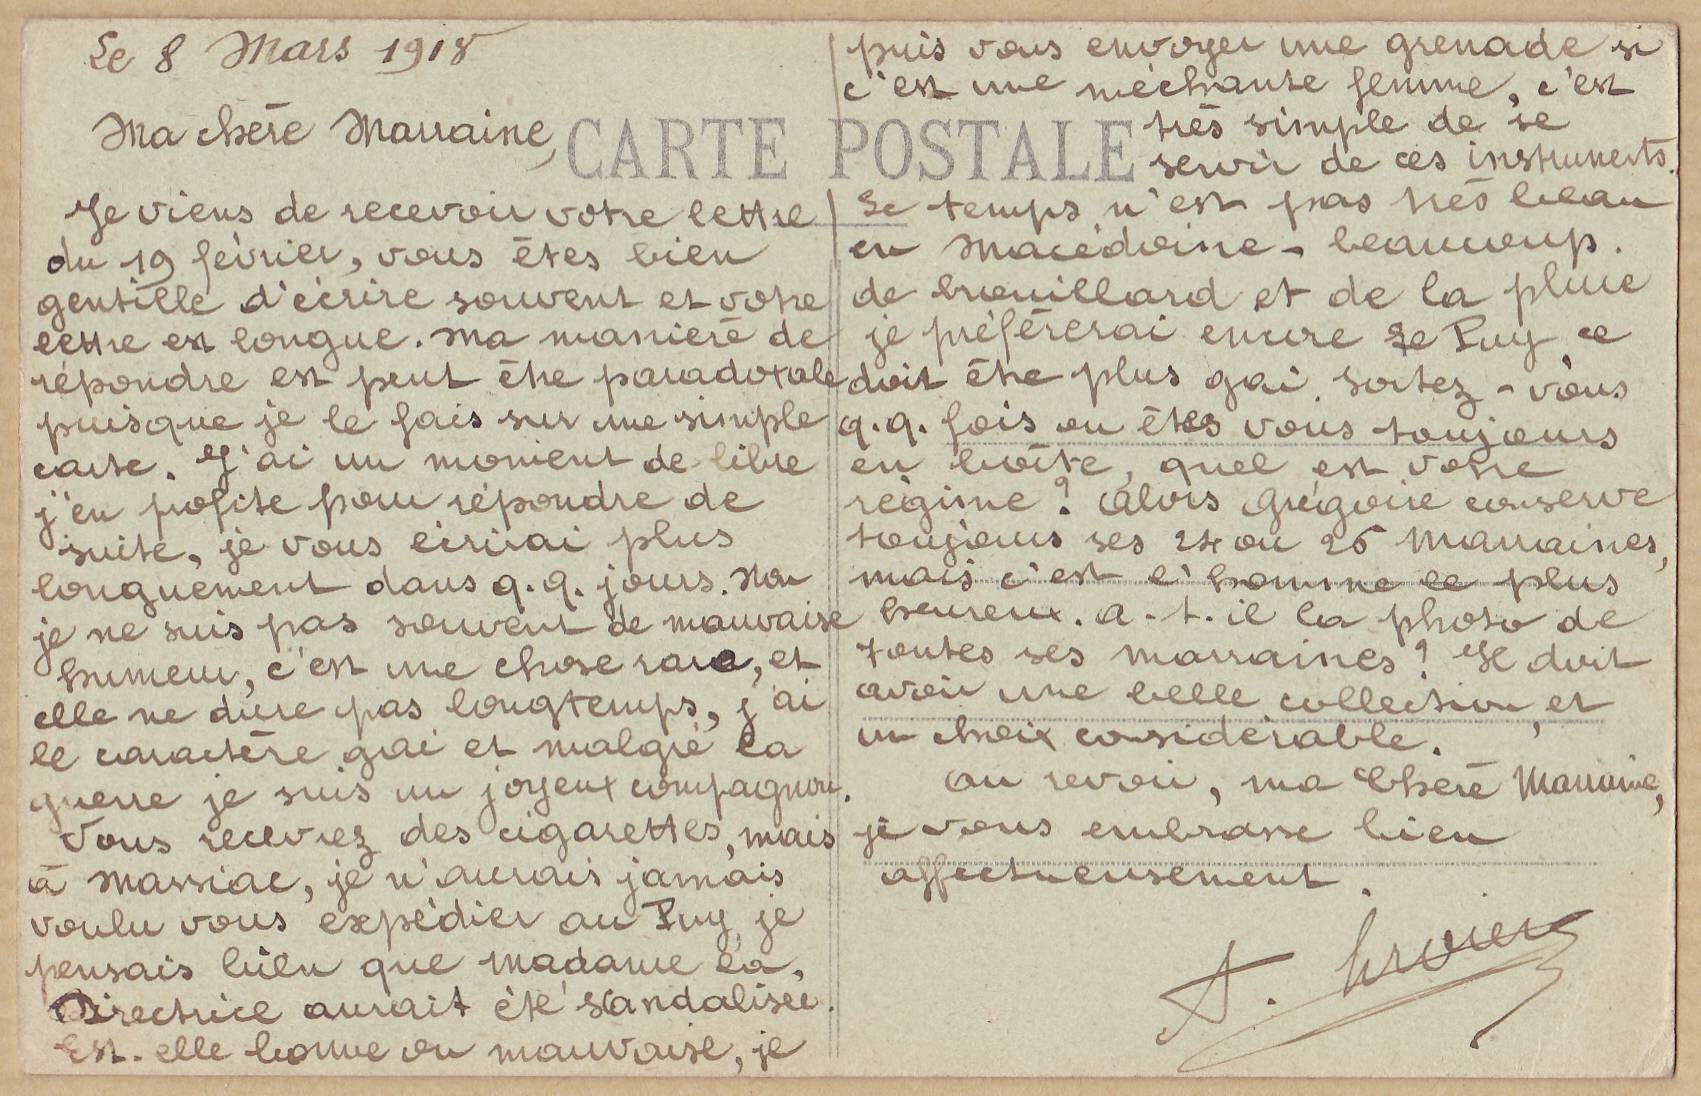 Le 8 Mars 1918
Ma chère Marraine,
CARTE POSTALE
Je viens de recevoir votre lettre
du 19 février, vous êtes bien
gentille d'écrire souvent et votre
lettre est longue. Ma manière de
répondre est peut être paradoxale
puisque je le fais sur une simple
carte. J'ai un moment de libre
j'en profite pour répondre de
suite, je vous écrirai plus
longuement dans q.q. jours. Non
je ne suis pas souvent de mauvaise
humeur, c'est une chose rare, et
elle ne dure pas longtemps, j'ai
le caractère gai et malgré la
guerre je suis un joyeux compagnon.
Vous recevrez des cigarettes, mais
à Massiac, je n'aurais jamais
voulu vous expédier au Puy, je
pensais bien que Madame la
Directrice aurait été scandalisée.
Est-elle bonne ou mauvaise, je
puis vous envoyer une grenade si
c'est une méchante femme, c'est
très simple de se
servir de ces instruments.
Le temps n'est pas très beau
en Macédoine - beaucoup
de brouillard et de la pluie
je préférerai encore Le Puy ce
doit être plus gai. Sortez-vous
q.q. fois ou êtes vous toujours
en boîte, quel est votre
régime ? Alors Grégoire conserve
toujours ses 24 ou 25 Marraines,
mais c'est l'homme le plus
heureux. A-t-il la photo de
toutes ses marraines ? Il doit
avoir une belle collection, et
un choix considérable.
Au revoir, ma Chère Marraine,
je vous embrasse bien
affectueusement.
A.